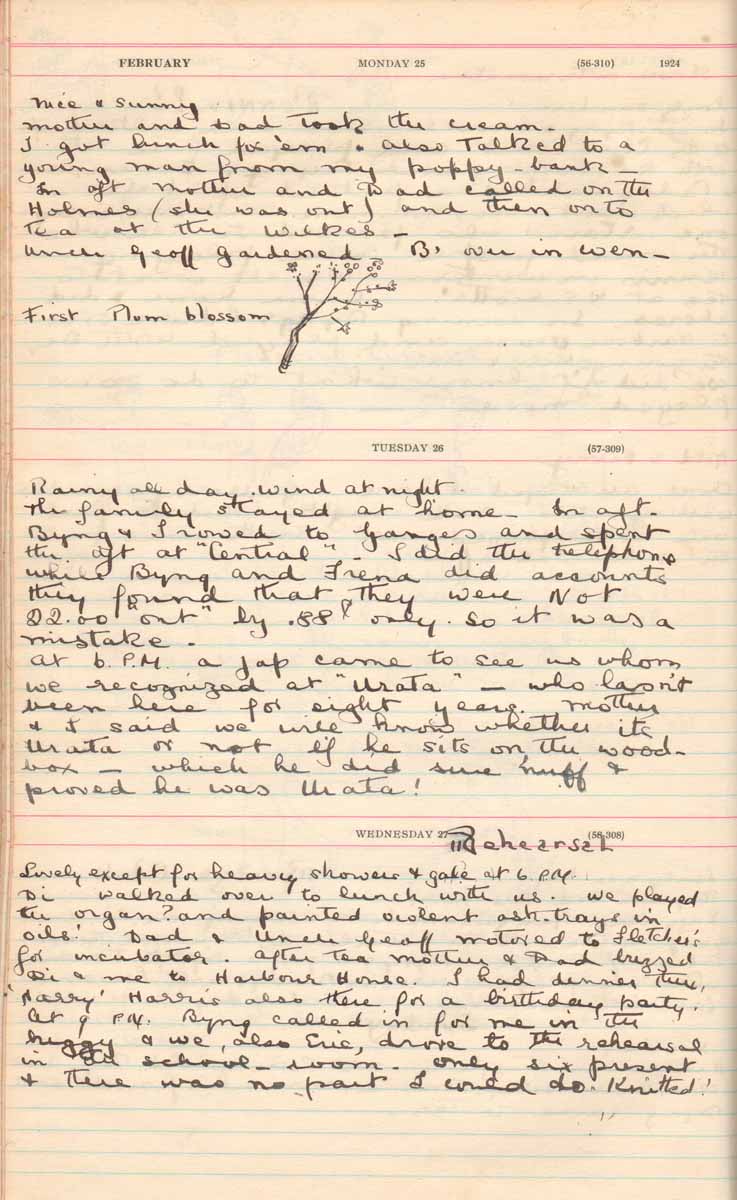 FEBRUARY MONDAY 25 (56-310) 1924
Nice & sunny
Mother and Dad took the cream.
I got lunch for 'em & also talked to a
young man from my poppy-bank —
In aft Mother and Dad called on the
Holmes (she was out) and then on to
tea at the Wilkes —
Uncle Geoff gardened B, over in even —
First Plum blossom
TUESDAY 26 (57-309)
Rainy all day. wind at night.
The family stayed at home — In aft.
Byng & I rowed to Ganges and spent
the aft at "Central" — I did the telephone
while Byng and Irena did accounts
they found that they were Not
$2.00 "out" by .88¢ only. so it was a
mistake.
At 6. P.M. a Jap came to see us whom
we recognized at "Urata" — who hasn't
been here for eight years. Mother
& I said we will know whether its
Urata or not if he sits on the wood-
box — which he did sure 'nuff &
proved he was Urata!
WEDNESDAY 27 (58-308)
Rehearsal
Lovely except for heavy showers & gale at 6 P.M.
Di walked over to lunch with us. We played
the organ? and painted violent ash-trays in
oils! Dad & Uncle Geoff motored to Fletcher's
for incubator. After tea Mother & Dad buzzed
Di & me to Harbour House. I had dinner there,
'Harry' Harris also there for a birthday party.
At 9 P.M. Byng called in for me in the
buggy & we, also Eric, drove to the rehearsal
in the school-room. Only six present
& there was no part I could do. Knitted!